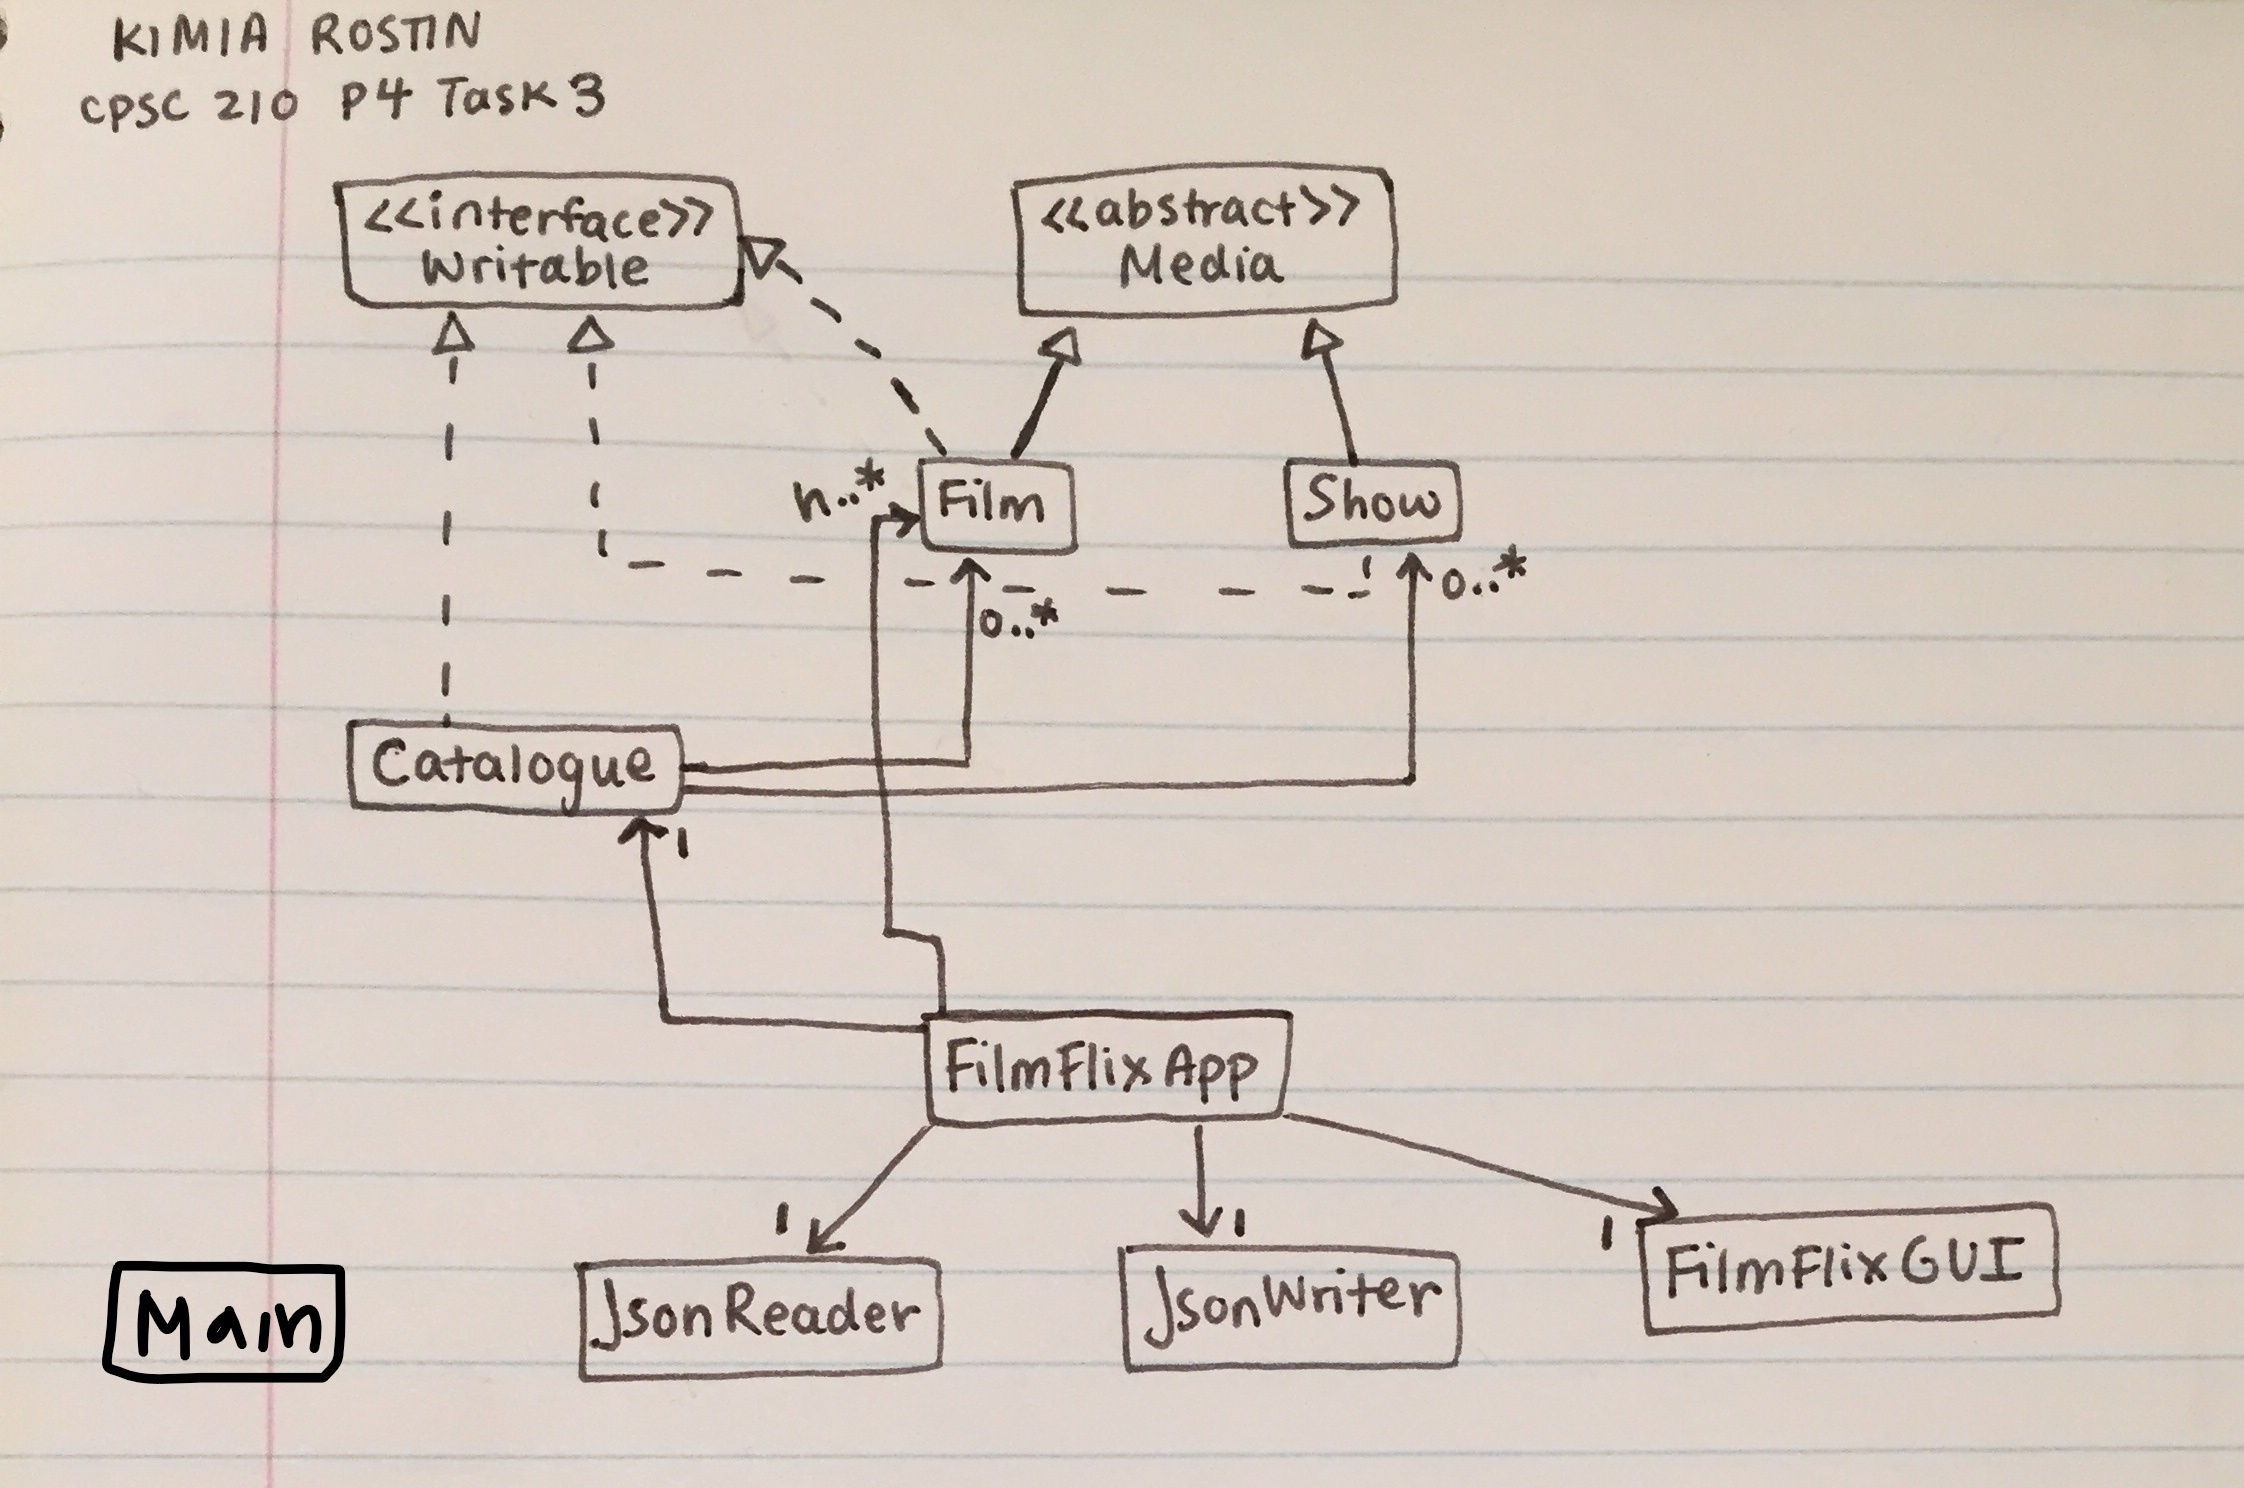 KIMIA ROSTIN
CPSC 210 P4 Task 3
<<interface>>
Writable
<<abstract>>
Media
n..*
Film
Show
0..*
0..*
Catalogue
1
FilmFlixApp
1
1
1
JsonReader
JsonWriter
FilmFlixGUI
Main